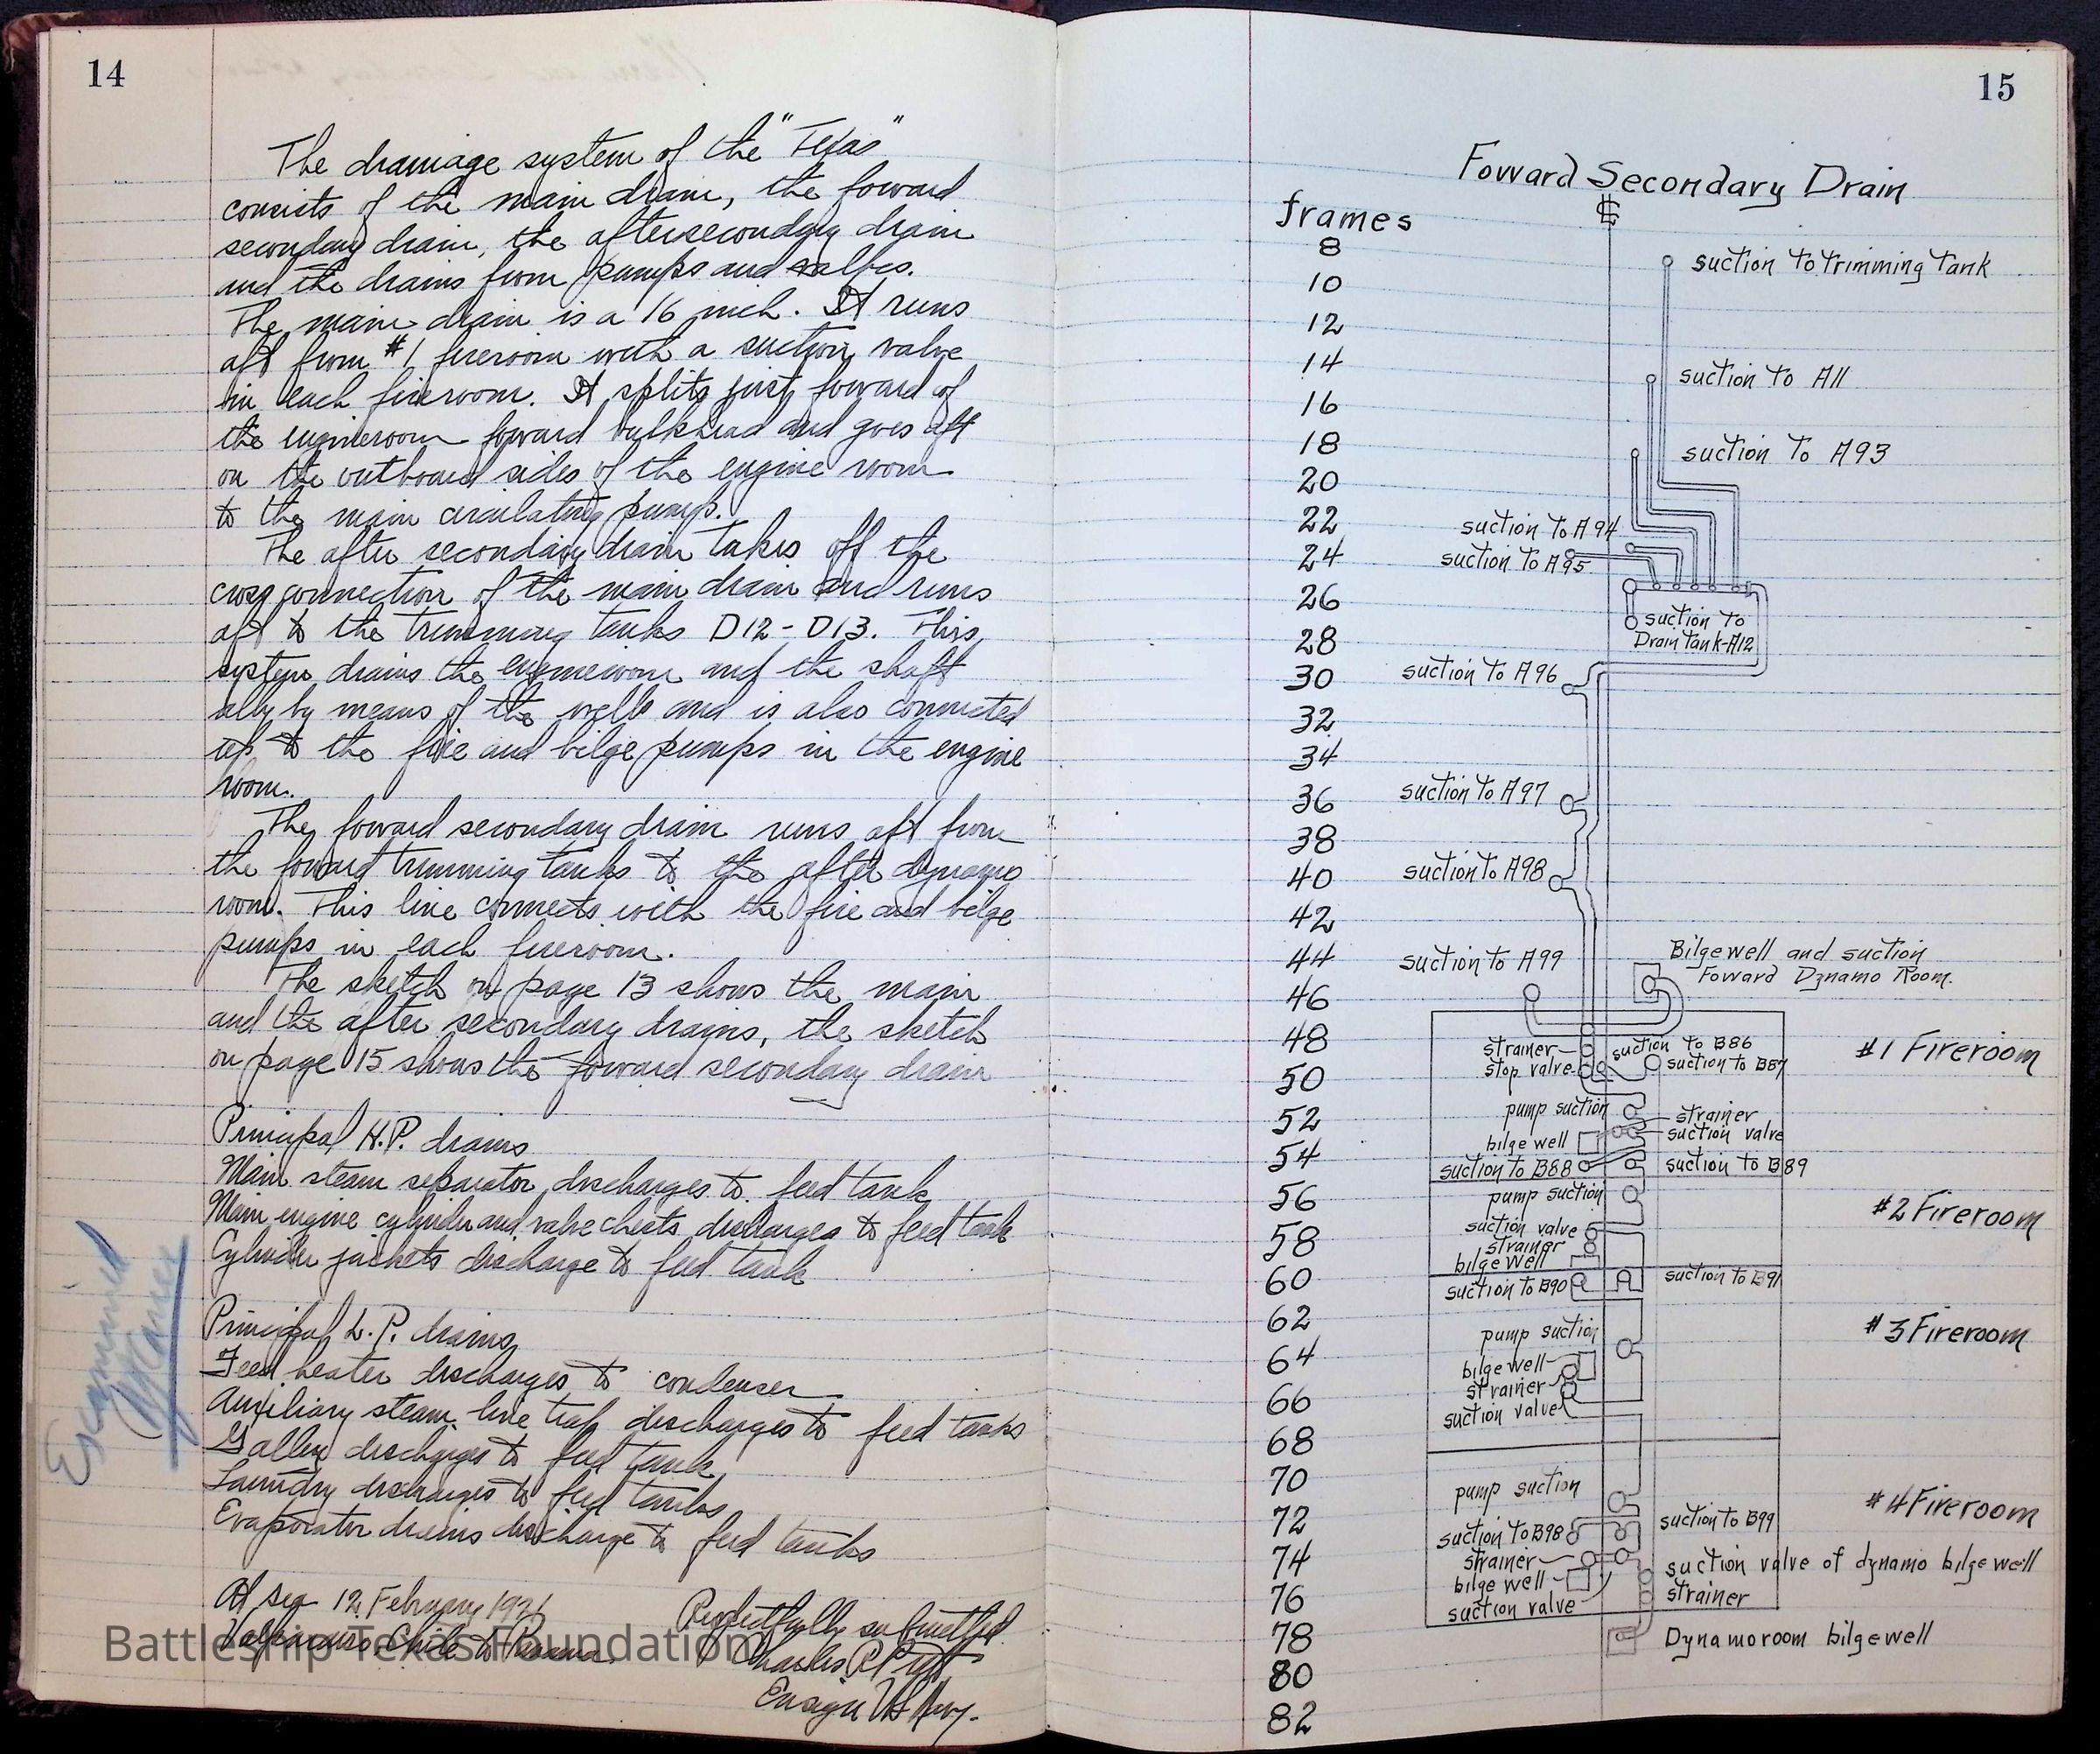 14
The drainage system of the "Texas"
consists of the main drain, the foward
secondary drain, the after secondary drain
and the drains from pumps and valves.
The main drain is a 16 inch. It runs
aft from #1 fireroom with a suction valve
in each fireroom. It splits just foward of
the engineroom foward bulkhead and goes aft
on the outboard sides of the engine room
to the main circulating pumps.
The after secondary drain takes off the
cross connection of the main drain and runs
aft to the trimming tanks D12-D13. This
system drains the engineroom and the shaft
ally by means of the wells and is also connected
up to the fire and bilge pumps in the engine
room.
The foward secondary drain runs aft from
the foward trimming tanks to the after dynamo
room. This line connects with the fire and bilge
pumps in each fireroom.
The sketch on page 13 shows the main
and the after secondary drains, the sketch
on page 15 shows the foward secondary drain
Principal H.P. drains
Main steam separator discharges to feed tank
Main engine cylinder and valve chests discharges to feed tank
Cylinder jackets discharge to feed tank
Principal L.P. drains
Feed heater discharges to condenser
Auxiliary steam line trap discharges to feed tanks
Galley discharges to feed tank
Laundry discharges to feed tanks
Evaporator drains discharge to feed tanks
At sea 12 February 1921
Valparaiso, Chile to Panama.
Respectfully submitted
Charles R
Ensign US Navy.
Examined
Battleship Texas Foundation
15
Foward Secondary Drain
frames
8
suction to Trimming Tank
10
12
14
suction to A11
16
18
suction to A93
20
22
suction to A94
24
suction to A95
26
suction to
Drain Tank-A12
28
30
suction to A96
32
34
36
suction to A97
38
40
suction to A98
42
44
suction to A99
Bilgewell and suction
Foward Dynamo Room.
46
48
strainer
suction to B86
#1 Fireroom
stop valve
suction to B87
50
52
pump suction
strainer
suction valve
bilge well
54
suction to B88
suction to B89
56
pump suction
#2 Fireroom
58
suction valve
strainer
bilge well
60
suction to B90
suction to B91
62
pump suction
#3 Fireroom
64
bilge well
strainer
66
suction valve
68
70
pump suction
#4 Fireroom
72
suction to B98
suction to B99
74
strainer
suction valve of dynamo bilge well
bilge well
76
strainer
suction valve
78
Dynamoroom bilgewell
80
82